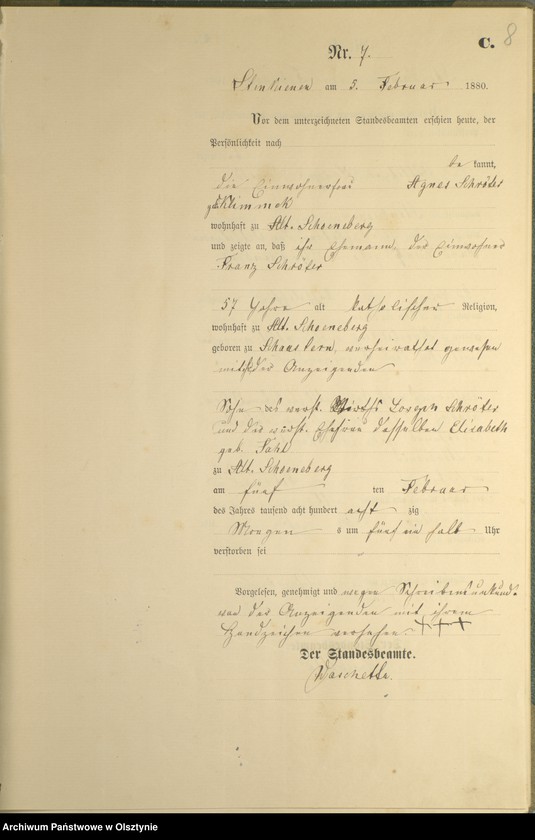 C. 8
Nr. 7.
am 5. Februar 1880.
Vor dem unterzeichneten Standesbeamten erschien heute, der
Persönlichkeit nach
be kannt,
die Einwohnerfrau Agnes Schröter
geb. Klimmek
wohnhaft zu Alt. Schoeneberg
und zeigte an, daß ihr Ehemann, der Einwohner
Franz Schröter
57 Jahre alt katholischer Religion,
wohnhaft zu Alt. Schoeneberg
geboren zu verheirathet gewesen
mit der Anzeigenden
Sohn des verst. Wirths Joseph Schröter
und der verst. Ehefrau desselben Elisabeth
geb. Fahl
zu Alt. Schoeneberg
am fünf ten Februar
des Jahres tausend acht hundert acht zig
Morgen s um fünf ein halb Uhr
verstorben sei
Vorgelesen, genehmigt und wegen Schreibensunkund.
von der Anzeigenden mit ihrem
Handzeichen versehen. +++
Der Standesbeamte.
Archiwum Państwowe w Olsztynie